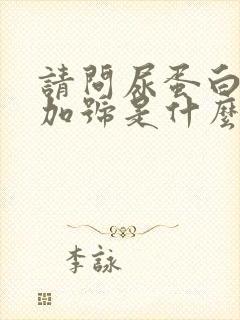 請問尿蛋白
加號是什麼
李詠